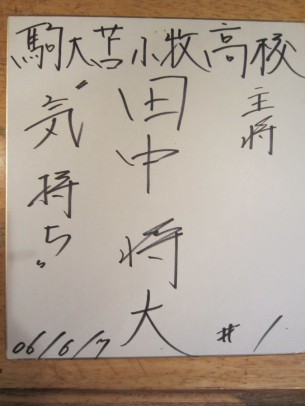 駒大苫小牧高校
主将
田中将大
"気持ち"
06/6/7
#1